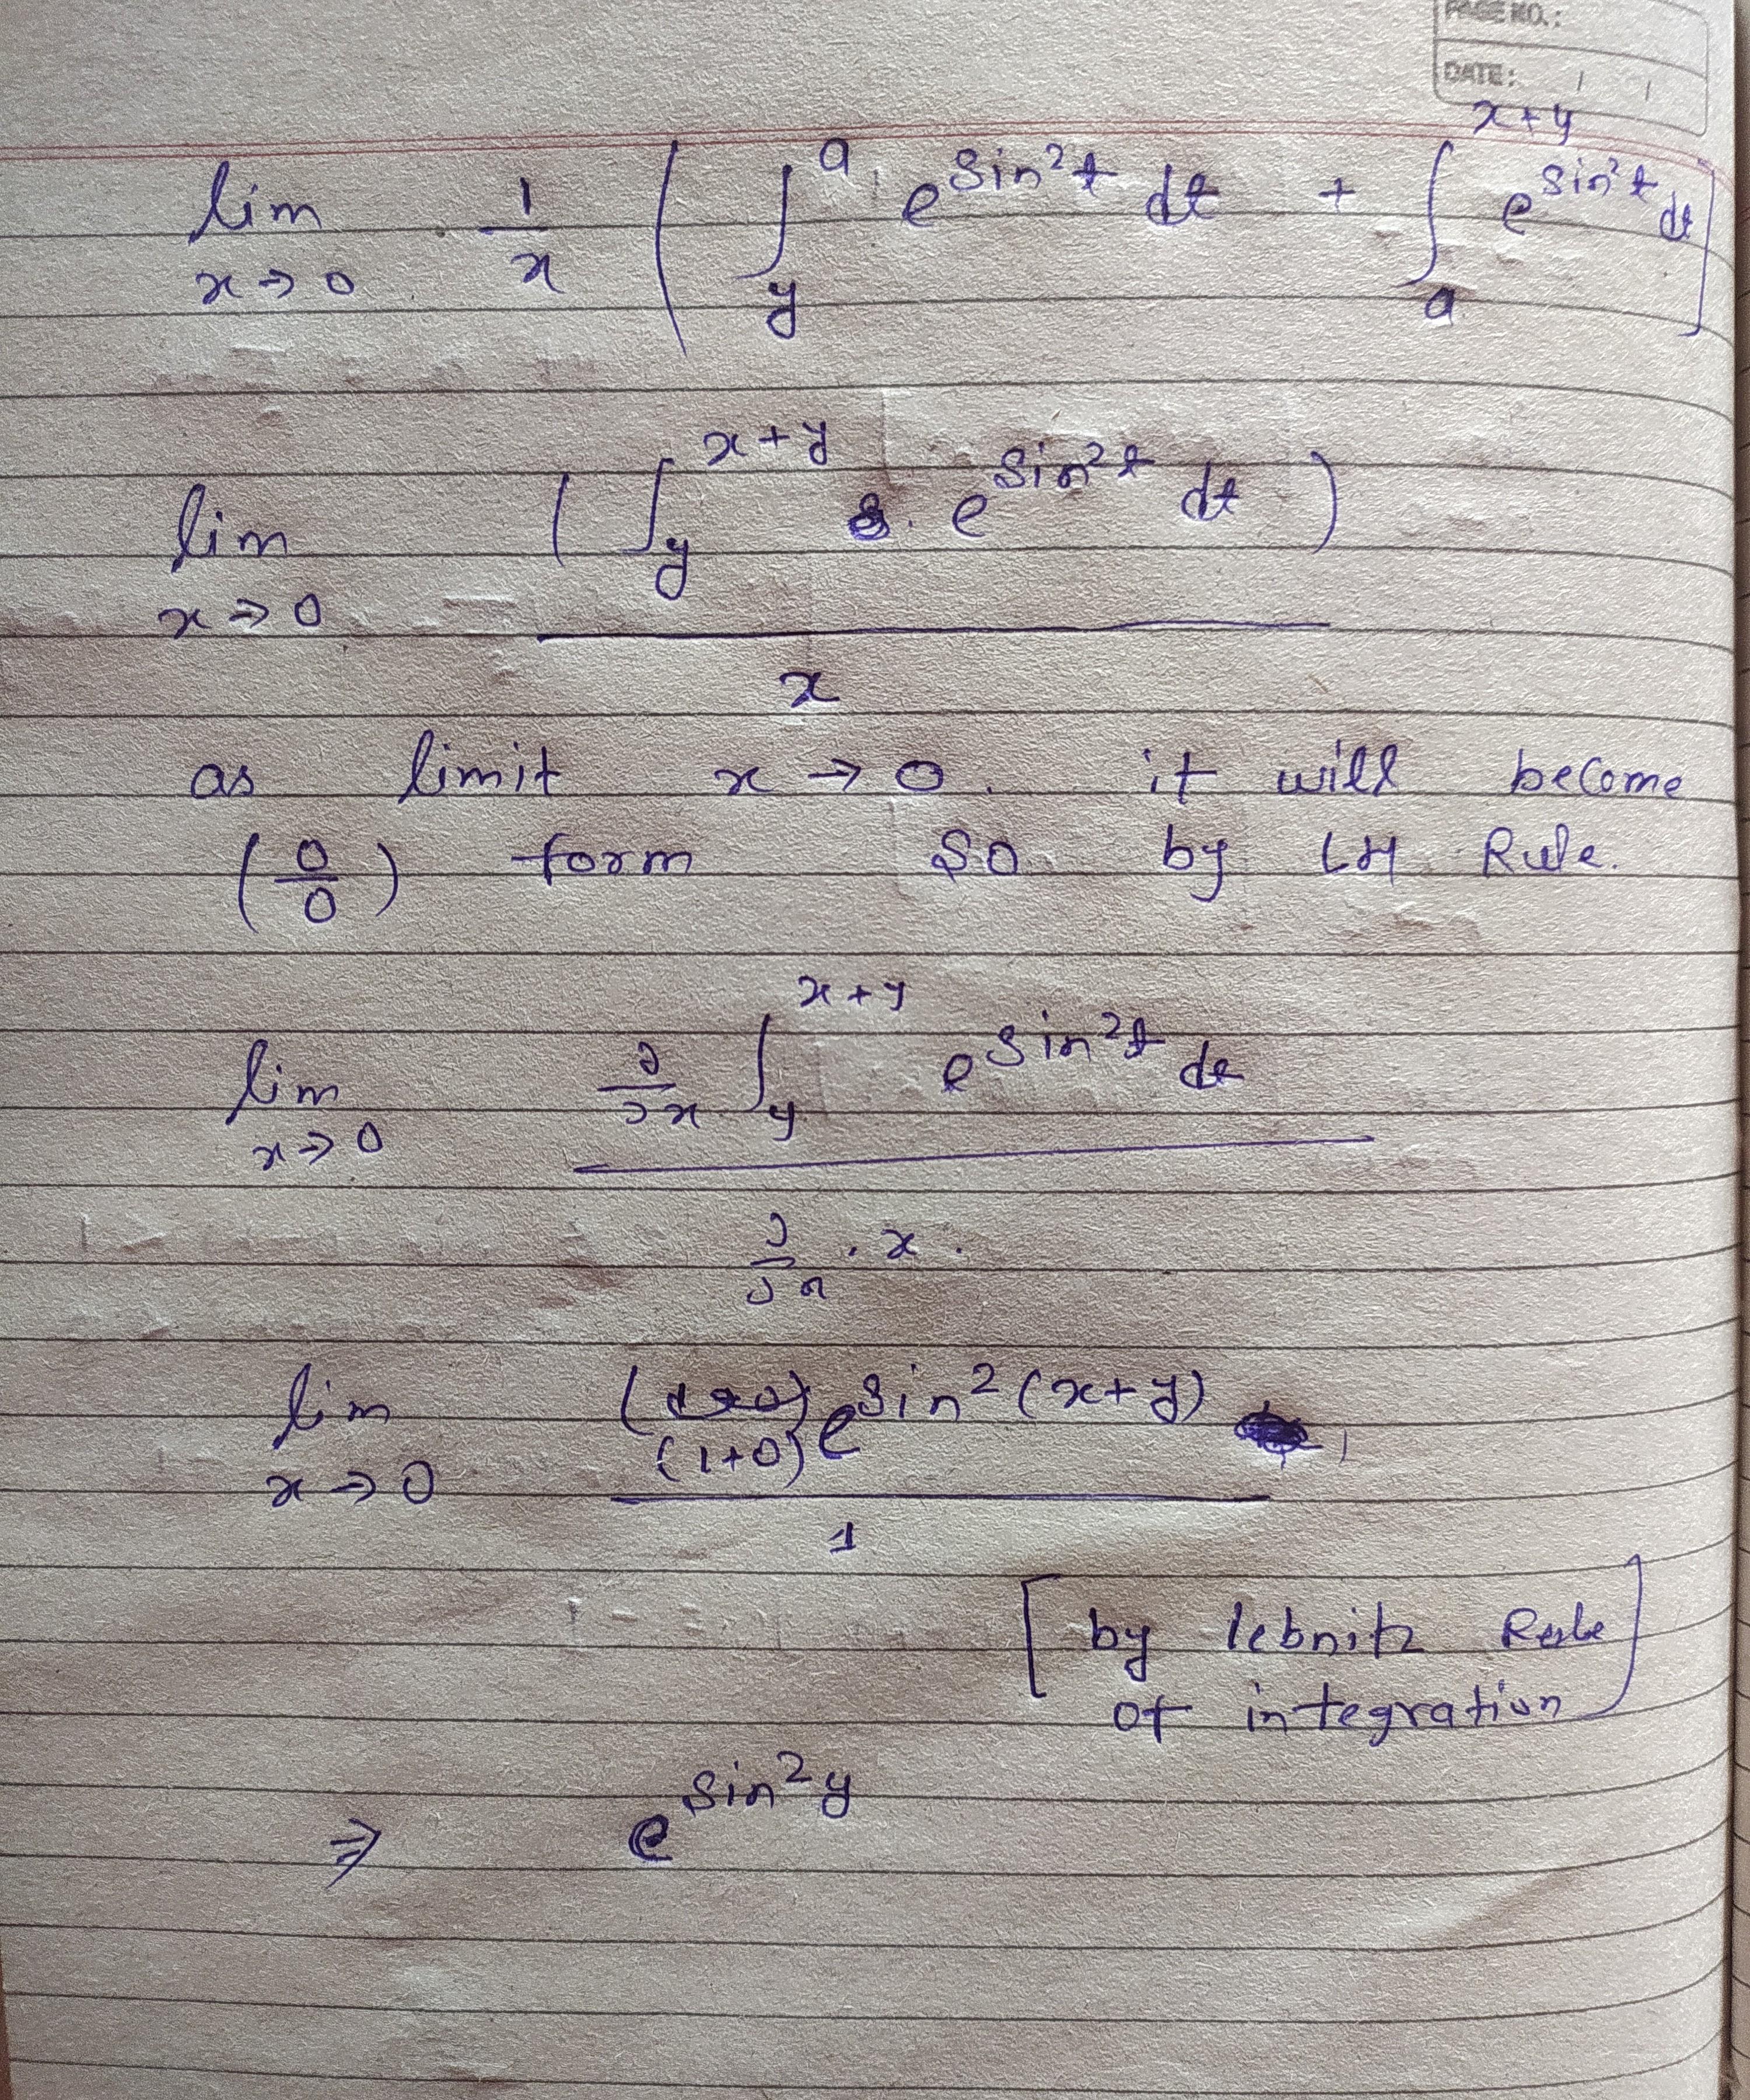 PAGE NO.:
DATE: / /
lim x→0 1/x ( ∫_y^a e^{sin²t} dt + ∫_a^{x+y} e^{sin²t} dt ]
lim x→0 ( ∫_y^{x+y} e^{sin²t} dt ) / x
as limit x→0. it will become
(0/0) form so by LH Rule.
lim x→0 ∂/∂x ∫_y^{x+y} e^{sin²t} dt / ∂/∂x . x .
lim x→0 (1+0) e^{sin²(x+y)} / 1
[ by lebnitz Rule
of integration ]
⇒ e^{sin²y}